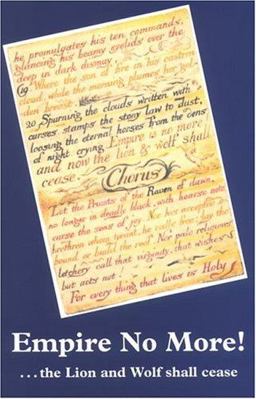 he promulgates his ten commands,
glancing his beamy eyelids over the
deep in dark dismay.
19 Where the son of fire in his eastern
cloud, while the morning plumes her gol-
den breast
20 Spurning the clouds written with
curses stamps the stony law to dust,
loosing the eternal horses from the dens
of night crying Empire is no more!
and now the lion & wolf shall
cease.
Chorus
Let the Priests of the Raven of dawn,
no longer in deadly black, with hoarse note
curse the sons of joy. Nor his accepted
brethren whom, tyrant, he calls free, lay the
bound or build the roof. Nor pale religious
letchery call that virginity, that wishes
but acts not!
For every thing that lives is Holy
Empire No More!
... the Lion and Wolf shall cease